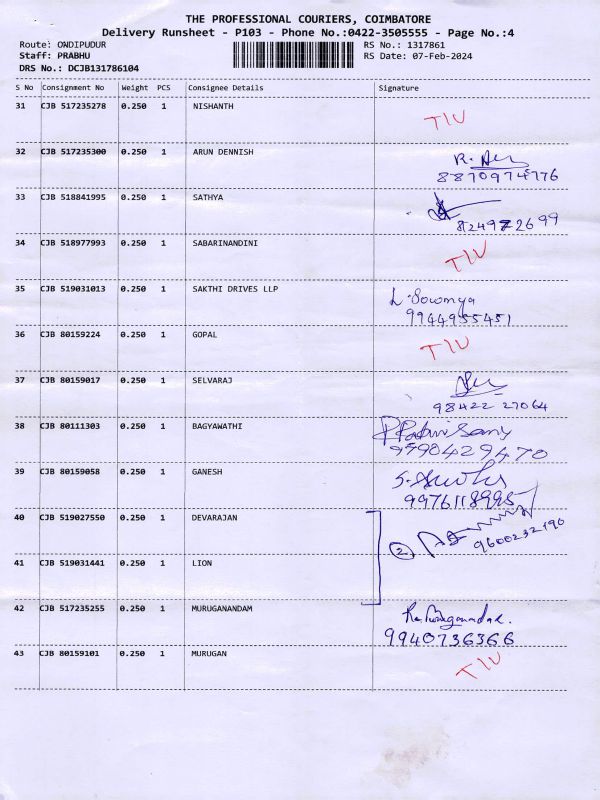 THE PROFESSIONAL COURIERS, COIMBATORE
Delivery Runsheet - P103 - Phone No.:0422-3505555 - Page No.:4
Route: ONDIPUDUR RS No.: 1317861
Staff: PRABHU RS Date: 07-Feb-2024
DRS No.: DCJB131786104
S No Consignment No Weight PCS Consignee Details Signature
31 CJB 517235278 0.250 1 NISHANTH
TIU
32 CJB 517235300 0.250 1 ARUN DENNISH
R.
8870974776
33 CJB 518841995 0.250 1 SATHYA
34 CJB 518977993 0.250 1 SABARINANDINI
TIU
35 CJB 519031013 0.250 1 SAKTHI DRIVES LLP
L. Sowmya
9944955451
36 CJB 80159224 0.250 1 GOPAL
TIU
37 CJB 80159017 0.250 1 SELVARAJ
98422 27064
38 CJB 80111303 0.250 1 BAGYAWATHI
9790429470
39 CJB 80159058 0.250 1 GANESH
S.
9976118995
40 CJB 519027550 0.250 1 DEVARAJAN
2 9600232190
41 CJB 519031441 0.250 1 LION
42 CJB 517235255 0.250 1 MURUGANANDAM
9940736366
43 CJB 80159101 0.250 1 MURUGAN
TIU